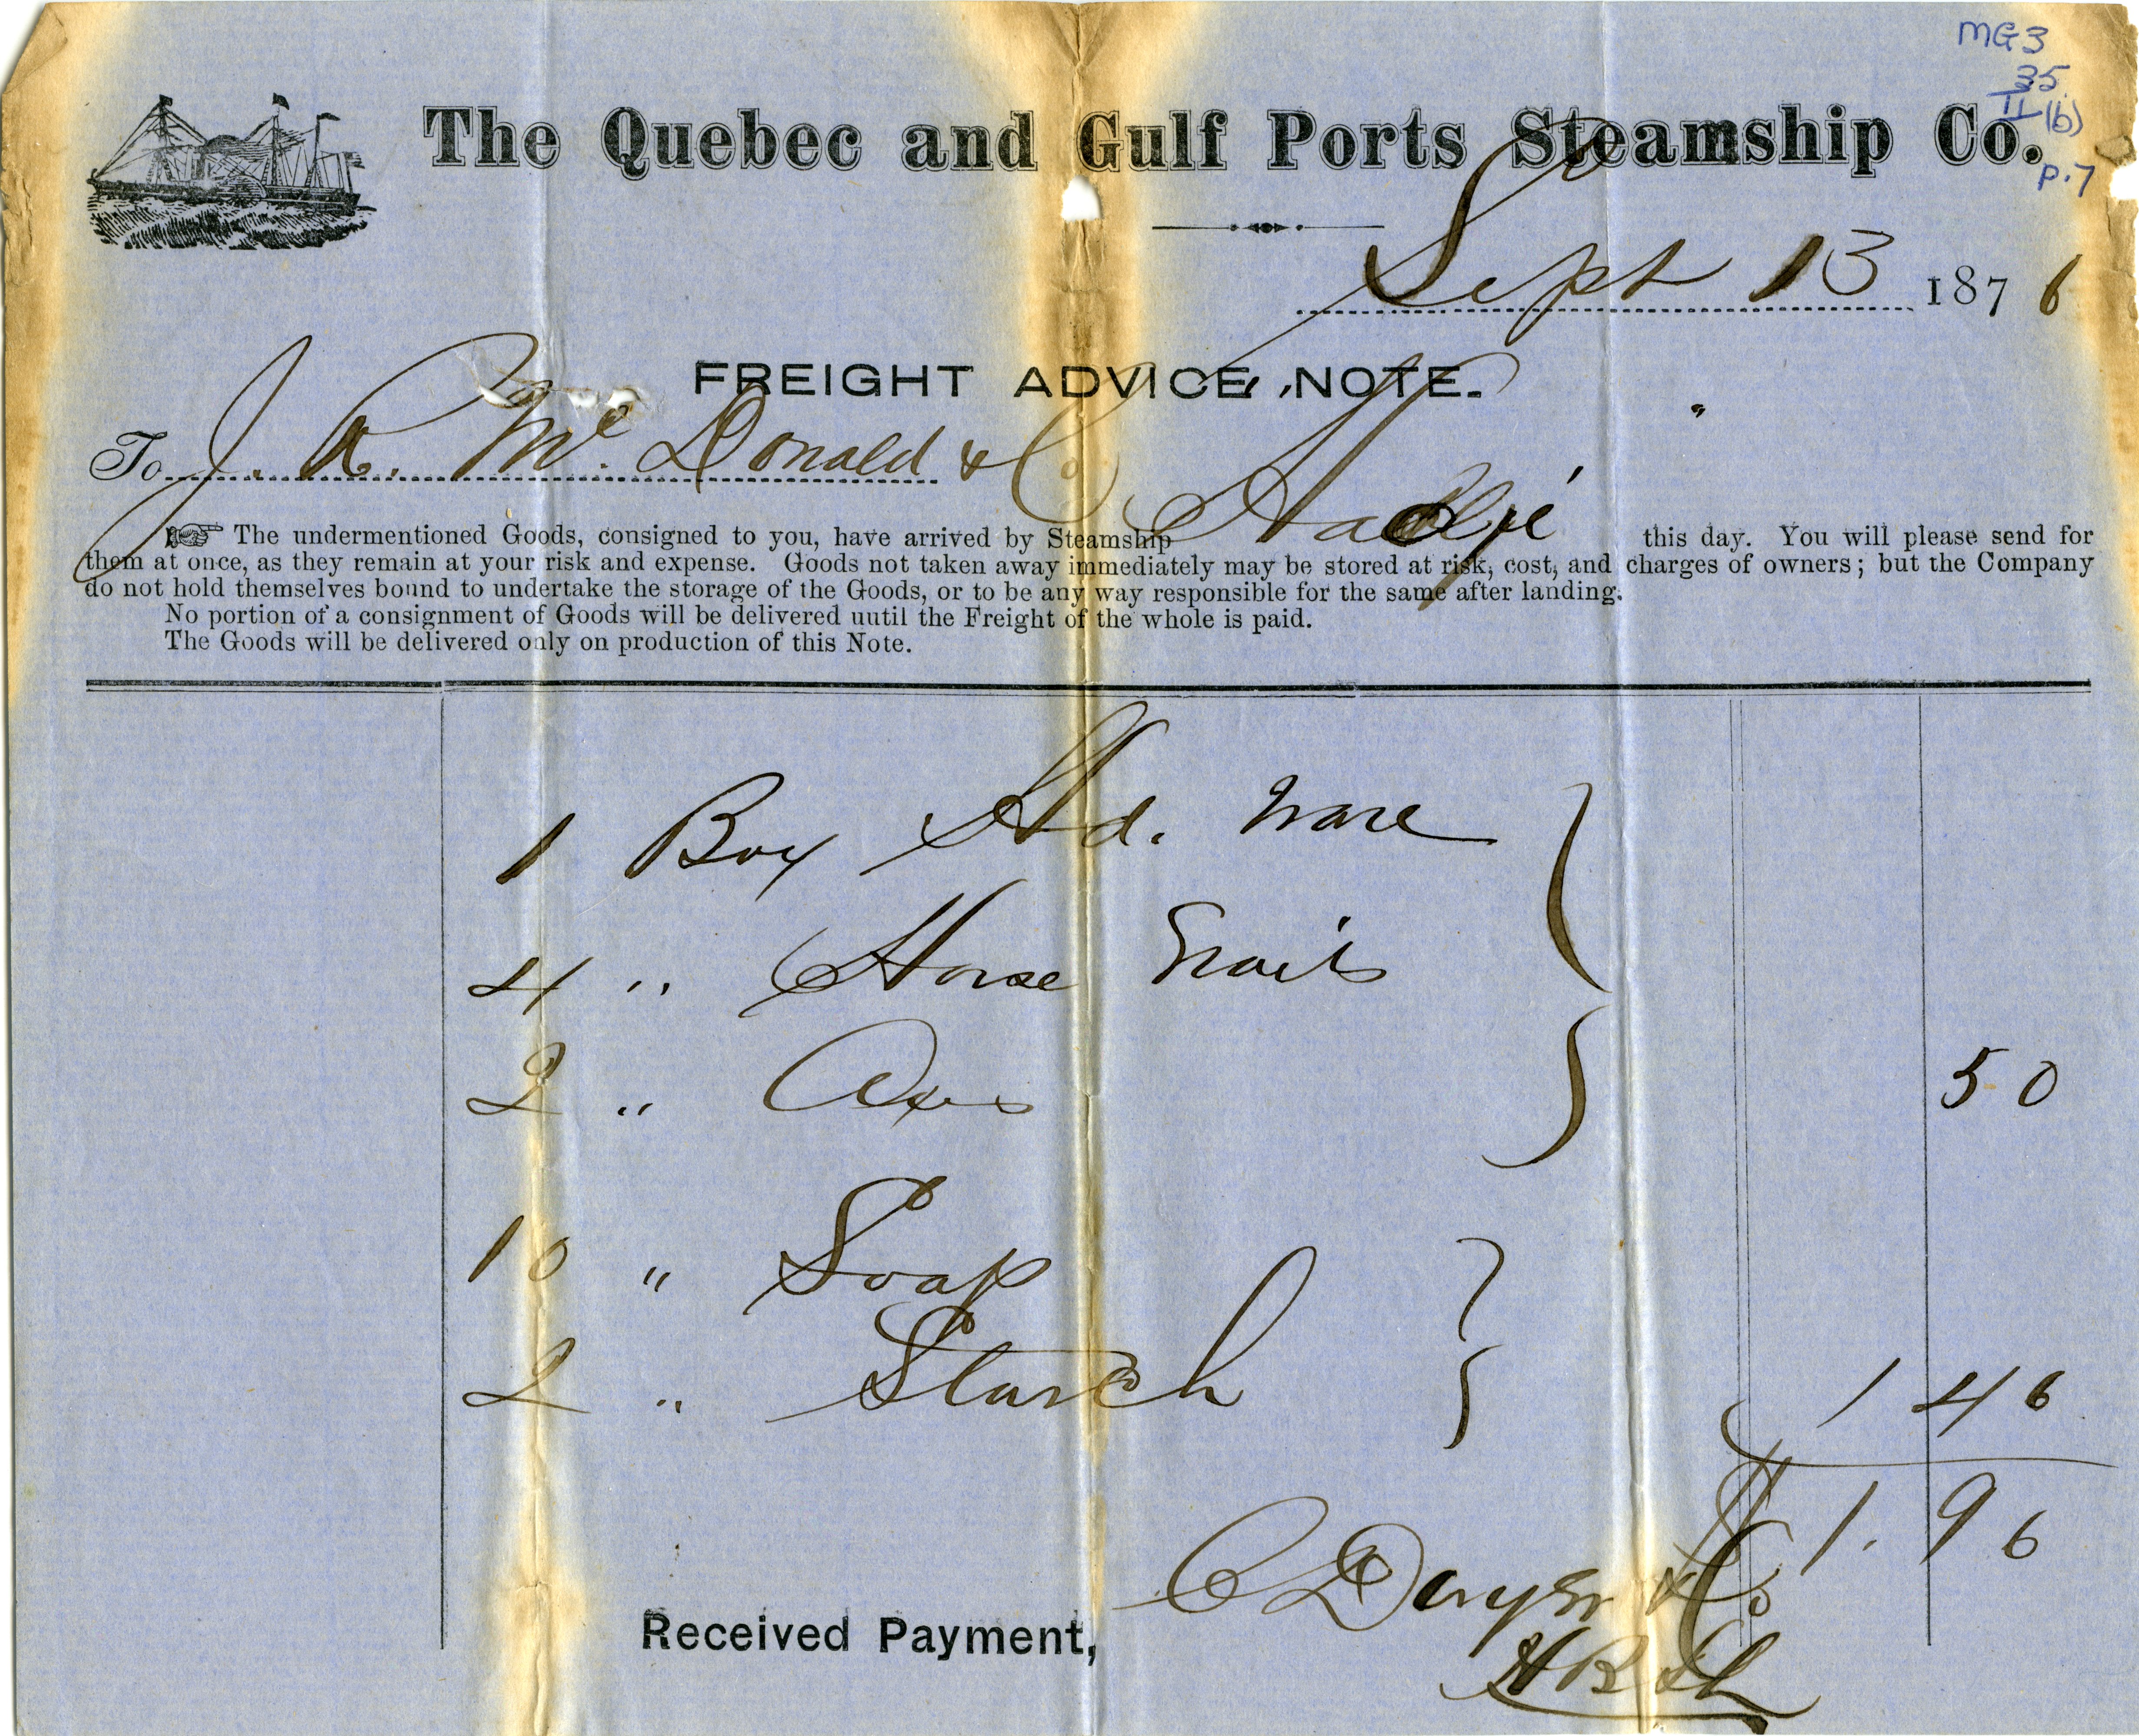 MG3
35
II (b)
p.7
The Quebec and Gulf Ports Steamship Co.
Sept 13 1876
FREIGHT ADVICE NOTE.
To J. R. McDonald & Co
The undermentioned Goods, consigned to you, have arrived by Steamship Hadji this day. You will please send for
them at once, as they remain at your risk and expense. Goods not taken away immediately may be stored at risk, cost, and charges of owners; but the Company
do not hold themselves bound to undertake the storage of the Goods, or to be any way responsible for the same after landing.
No portion of a consignment of Goods will be delivered uutil the Freight of the whole is paid.
The Goods will be delivered only on production of this Note.
1 Box Hd. Ware
4 " Horse Nails
2 " Axes 50
10 " Soap
2 " Starch 1 46
$1.96
Received Payment,
& Co